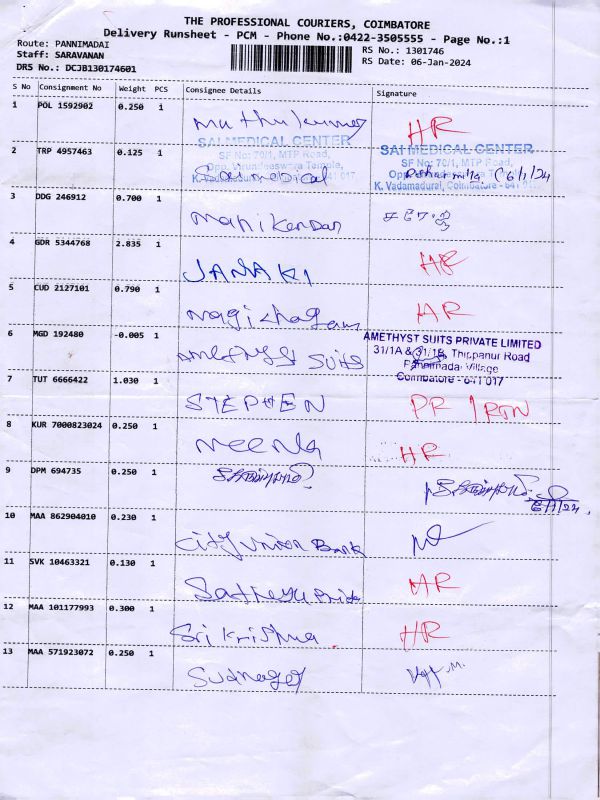 THE PROFESSIONAL COURIERS, COIMBATORE
Delivery Runsheet - PCM - Phone No.:0422-3505555 - Page No.:1
Route: PANNIMADAI
Staff: SARAVANAN
DRS No.: DCJB130174601
RS No.: 1301746
RS Date: 06-Jan-2024
S No Consignment No Weight PCS Consignee Details Signature
1 POL 1592902 0.250 1 Muthukumar HR
2 TRP 4957463 0.125 1 Sai medical
SAI MEDICAL CENTER
SF No: 70/1, MTP Road,
Opp. Temple,
K. Vadamadurai, Coimbatore - 641 017
SAI MEDICAL CENTER
SF No: 70/1, MTP Road,
K. Vadamadurai, Coimbatore - 641 017
3 DDG 246912 0.700 1 Manikandan
4 GDR 5344768 2.835 1 JANAKI HR
5 CUD 2127101 0.790 1 HR
6 MGD 192480 -0.005 1 Amethyst Suits
AMETHYST SUITS PRIVATE LIMITED
31/1A & 31/1B, Thippanur Road
Pannimadai Village
Coimbatore - 641 017
7 TUT 6666422 1.030 1 STEPHEN PR / RTN
8 KUR 7000823024 0.250 1 Meena HR
9 DPM 694735 0.250 1
10 MAA 862904010 0.230 1 City Union Bank
11 SVK 10463321 0.130 1 HR
12 MAA 101177993 0.300 1 Sri Krishna HR
13 MAA 571923072 0.250 1